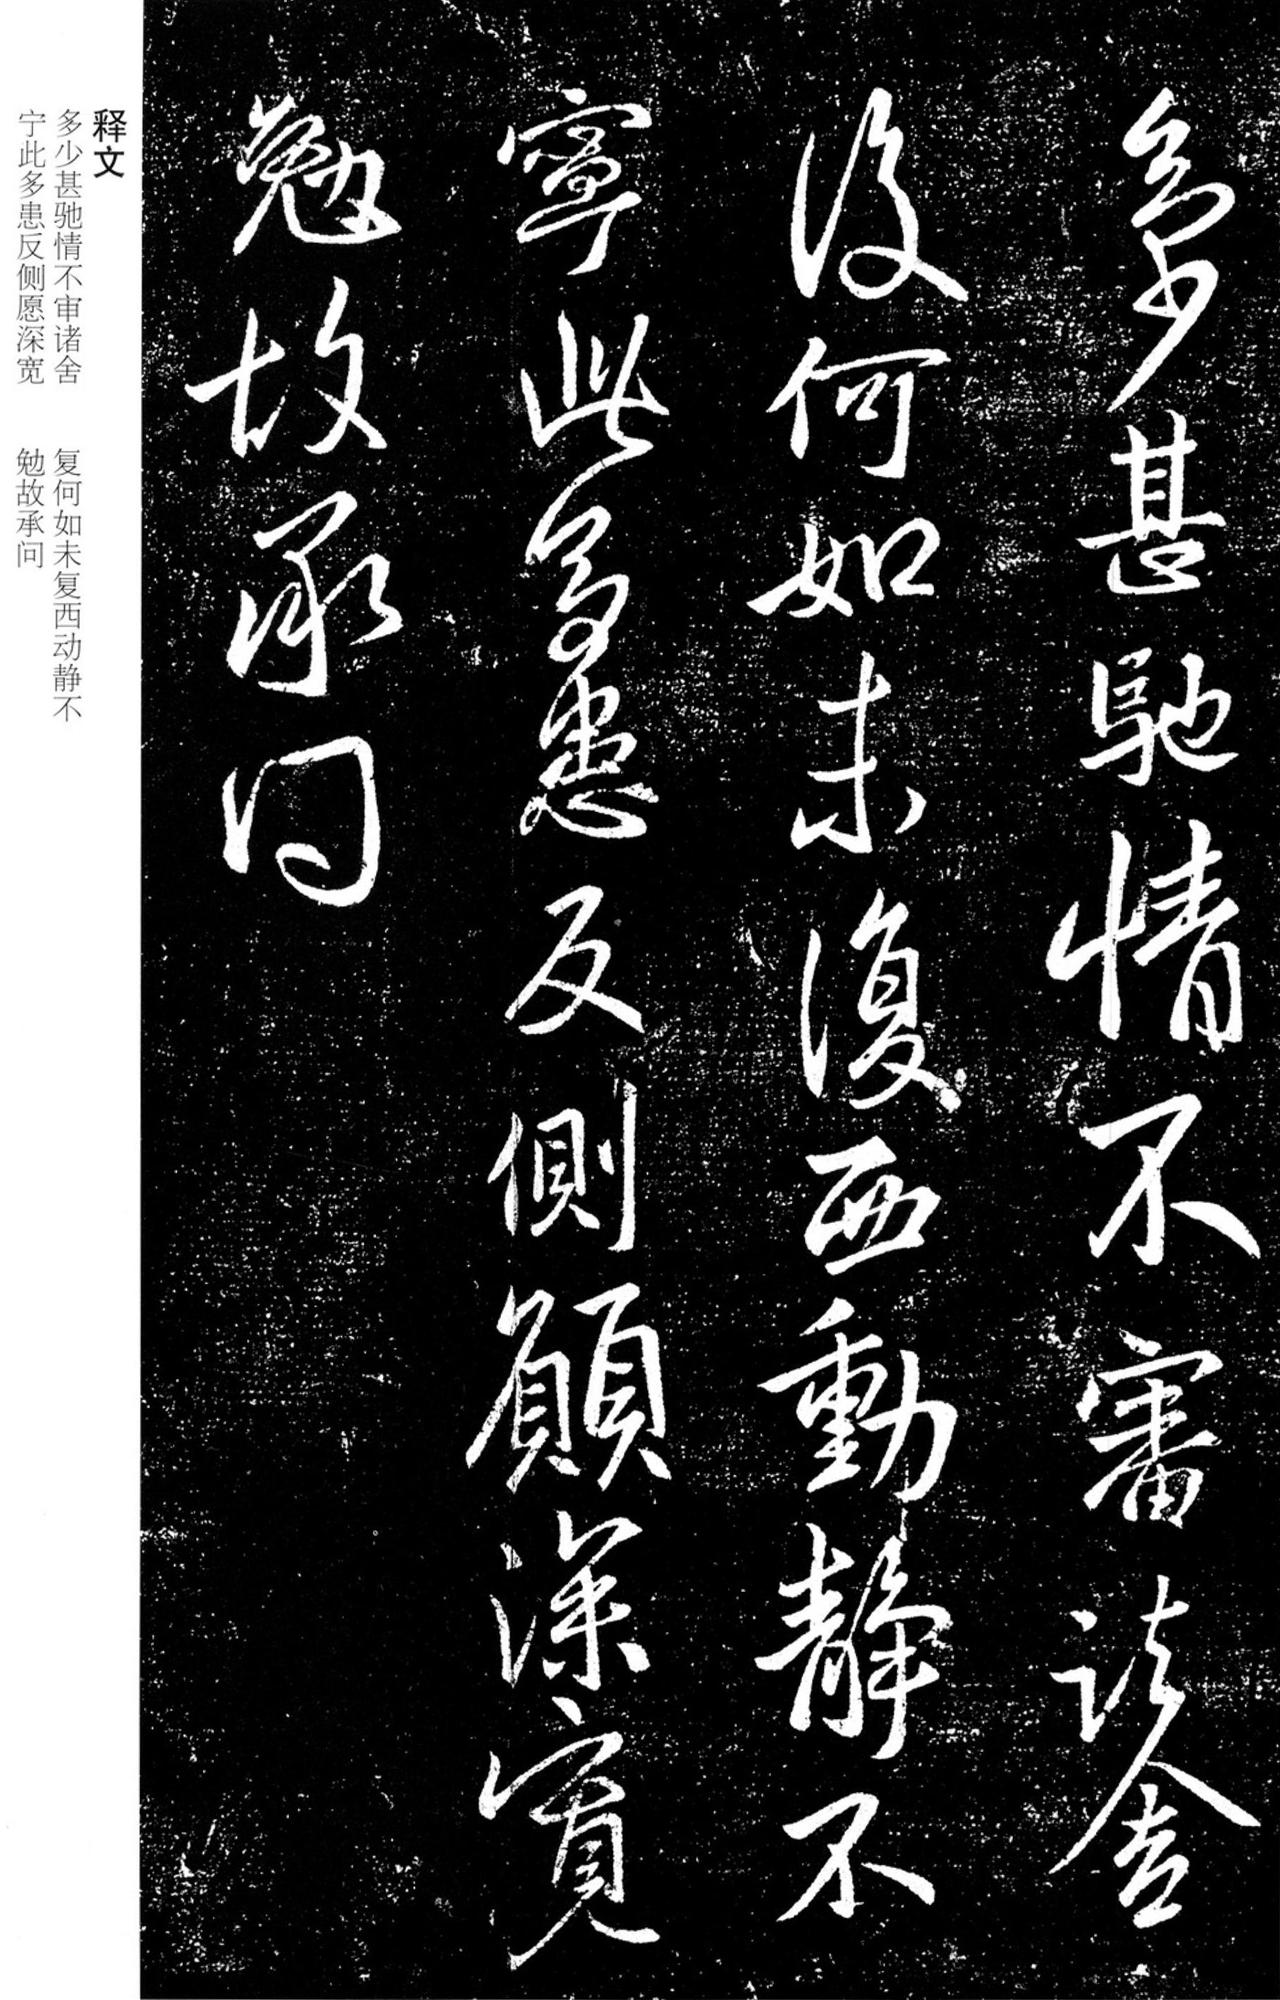 多少甚馳情不審諸舍
復何如未復西動靜不
寧此多患反側願深寬
勉故承問
释文
多少甚驰情不审诸舍　复何如未复西动静不
宁此多患反侧愿深宽　勉故承问